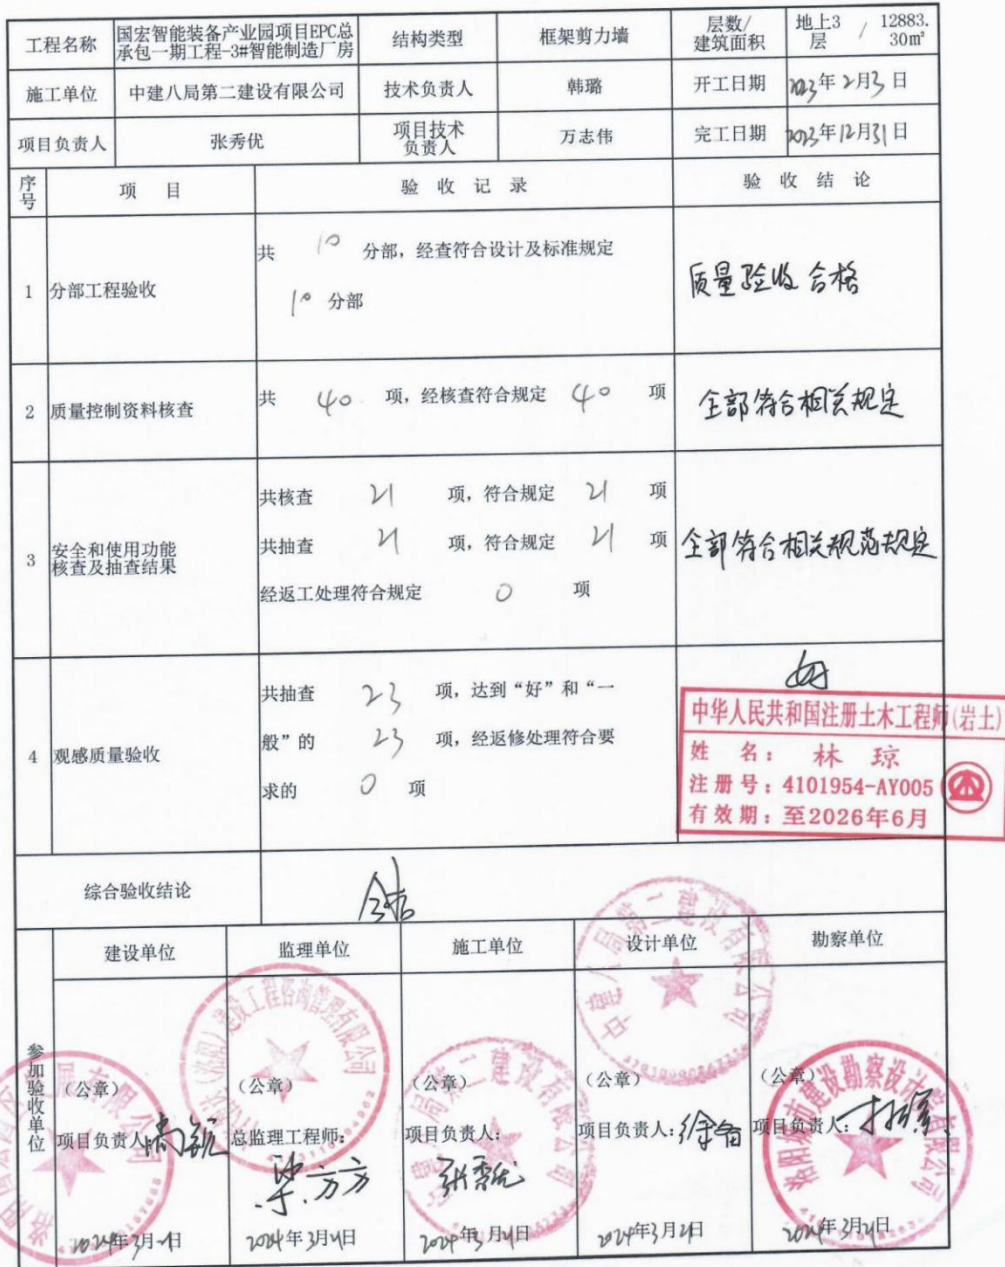 工程名称 国宏智能装备产业园项目EPC总承包一期工程-3#智能制造厂房 结构类型 框架剪力墙 层数/建筑面积 地上3层 / 12883.30㎡
施工单位 中建八局第二建设有限公司 技术负责人 韩璐 开工日期 2023年2月3日
项目负责人 张秀优 项目技术负责人 万志伟 完工日期 2023年12月31日
序号 项 目 验 收 记 录 验 收 结 论
1 分部工程验收
共 10 分部，经查符合设计及标准规定
10 分部
质量验收合格
2 质量控制资料核查 共 40 项，经核查符合规定 40 项 全部符合相关规定
3 安全和使用功能核查及抽查结果
共核查 21 项，符合规定 21 项
共抽查 21 项，符合规定 21 项
经返工处理符合规定 0 项
全部符合相关规范规定
4 观感质量验收
共抽查 23 项，达到“好”和“一
般”的 23 项，经返修处理符合要
求的 0 项
好
中华人民共和国注册土木工程师(岩土)
姓 名： 林 琼
注册号：4101954-AY005
有效期：至2026年6月
综合验收结论 合格
参加验收单位
建设单位 监理单位 施工单位 设计单位 勘察单位
（公章） （公章） （公章） （公章） （公章）
项目负责人： 总监理工程师： 项目负责人： 项目负责人： 项目负责人：
张秀优
2024年3月 日 2024年3月 日 2024年3月 日 2024年3月 日 2024年3月 日
建设工程咨询管理有限公司
中建八局第二建设有限公司
洛阳城市建设勘察设计院有限公司